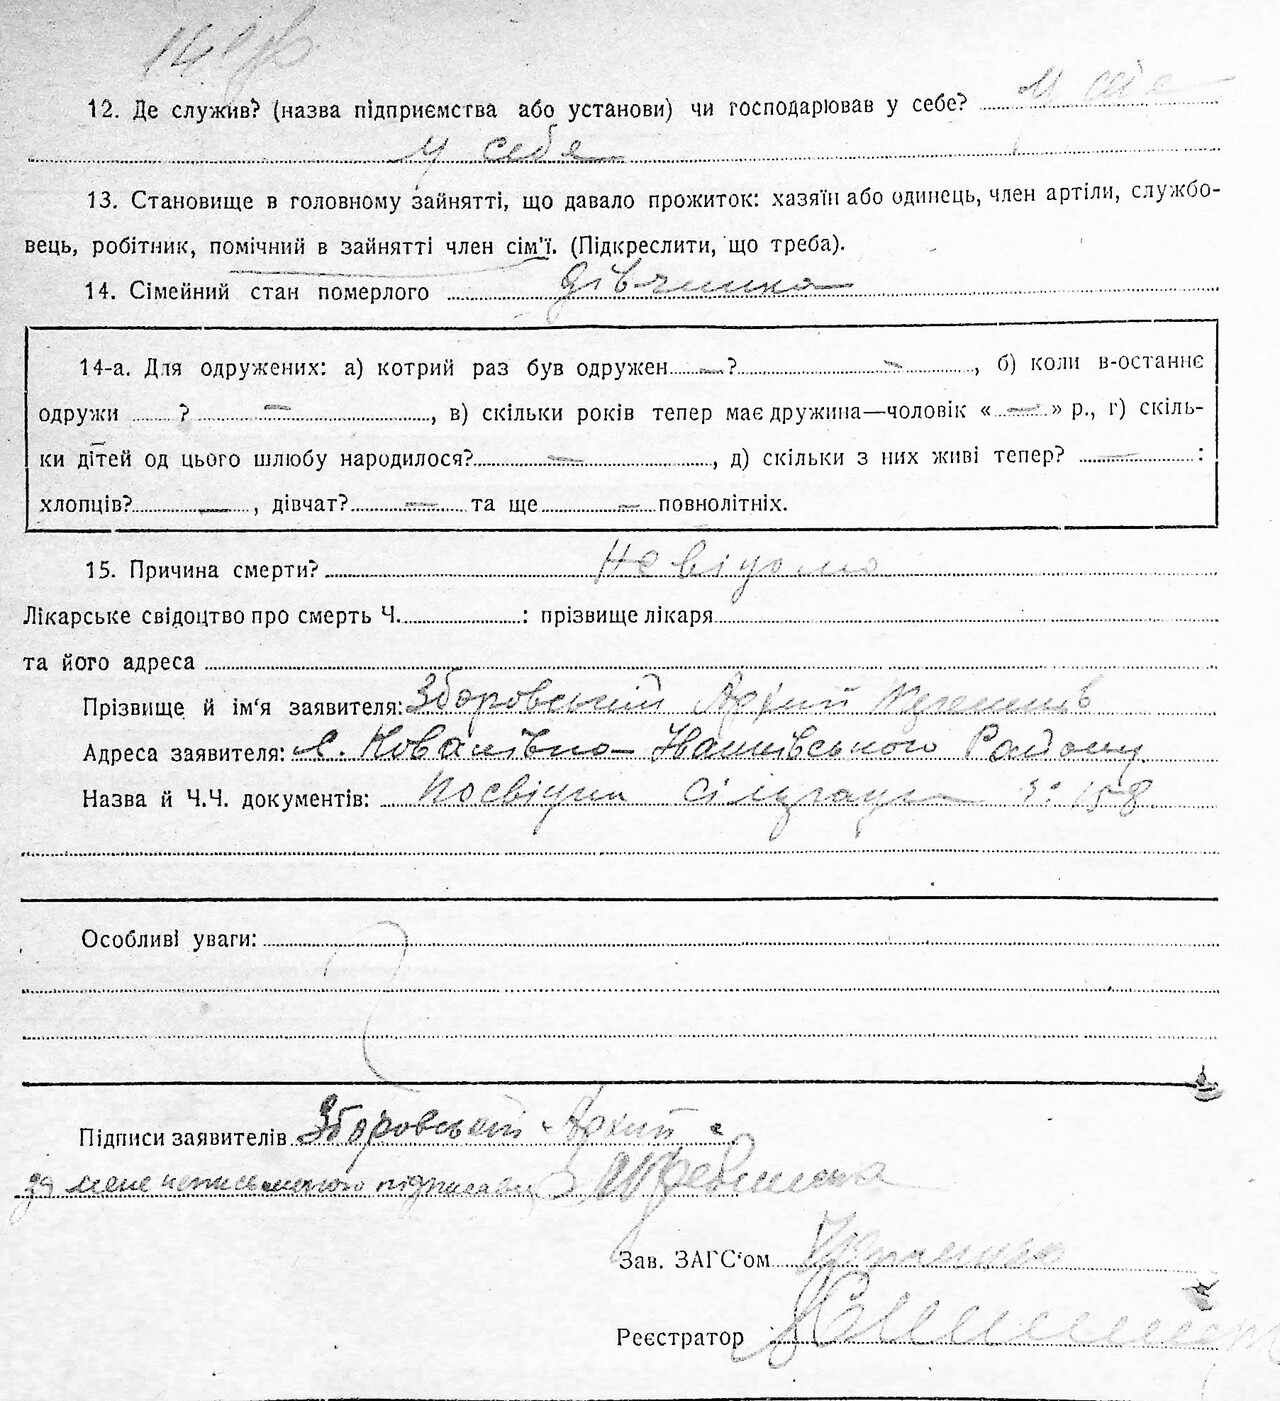 12. Де служив? (назва підприємства або установи) чи господарював у себе?
у себе
13. Становище в головному зайнятті, що давало прожиток: хазяїн або одинець, член артіли, службо-
вець, робітник, помічний в зайнятті член сім'ї. (Підкреслити, що треба).
14. Сімейний стан померлого дівчинка
14-а. Для одружених: а) котрий раз був одружен — ? —, б) коли в-останнє
одружи ? —, в) скільки років тепер має дружина—чоловік « — » р., г) скіль-
ки дітей од цього шлюбу народилося? —, д) скільки з них живі тепер? — :
хлопців? —, дівчат? — та ще — повнолітніх.
15. Причина смерти? Не відомо
Лікарське свідоцтво про смерть Ч. : прізвище лікаря
та його адреса
Прізвище й ім'я заявителя: Зборовський Архип
Адреса заявителя: с. Ковалівка Району
Назва й Ч.Ч. документів: Посвідка сільради 158
Особливі уваги:
Підписи заявителів Зборовский Архип
за мене неписьменого підписав
Зав. ЗАГС'ом
Реєстратор